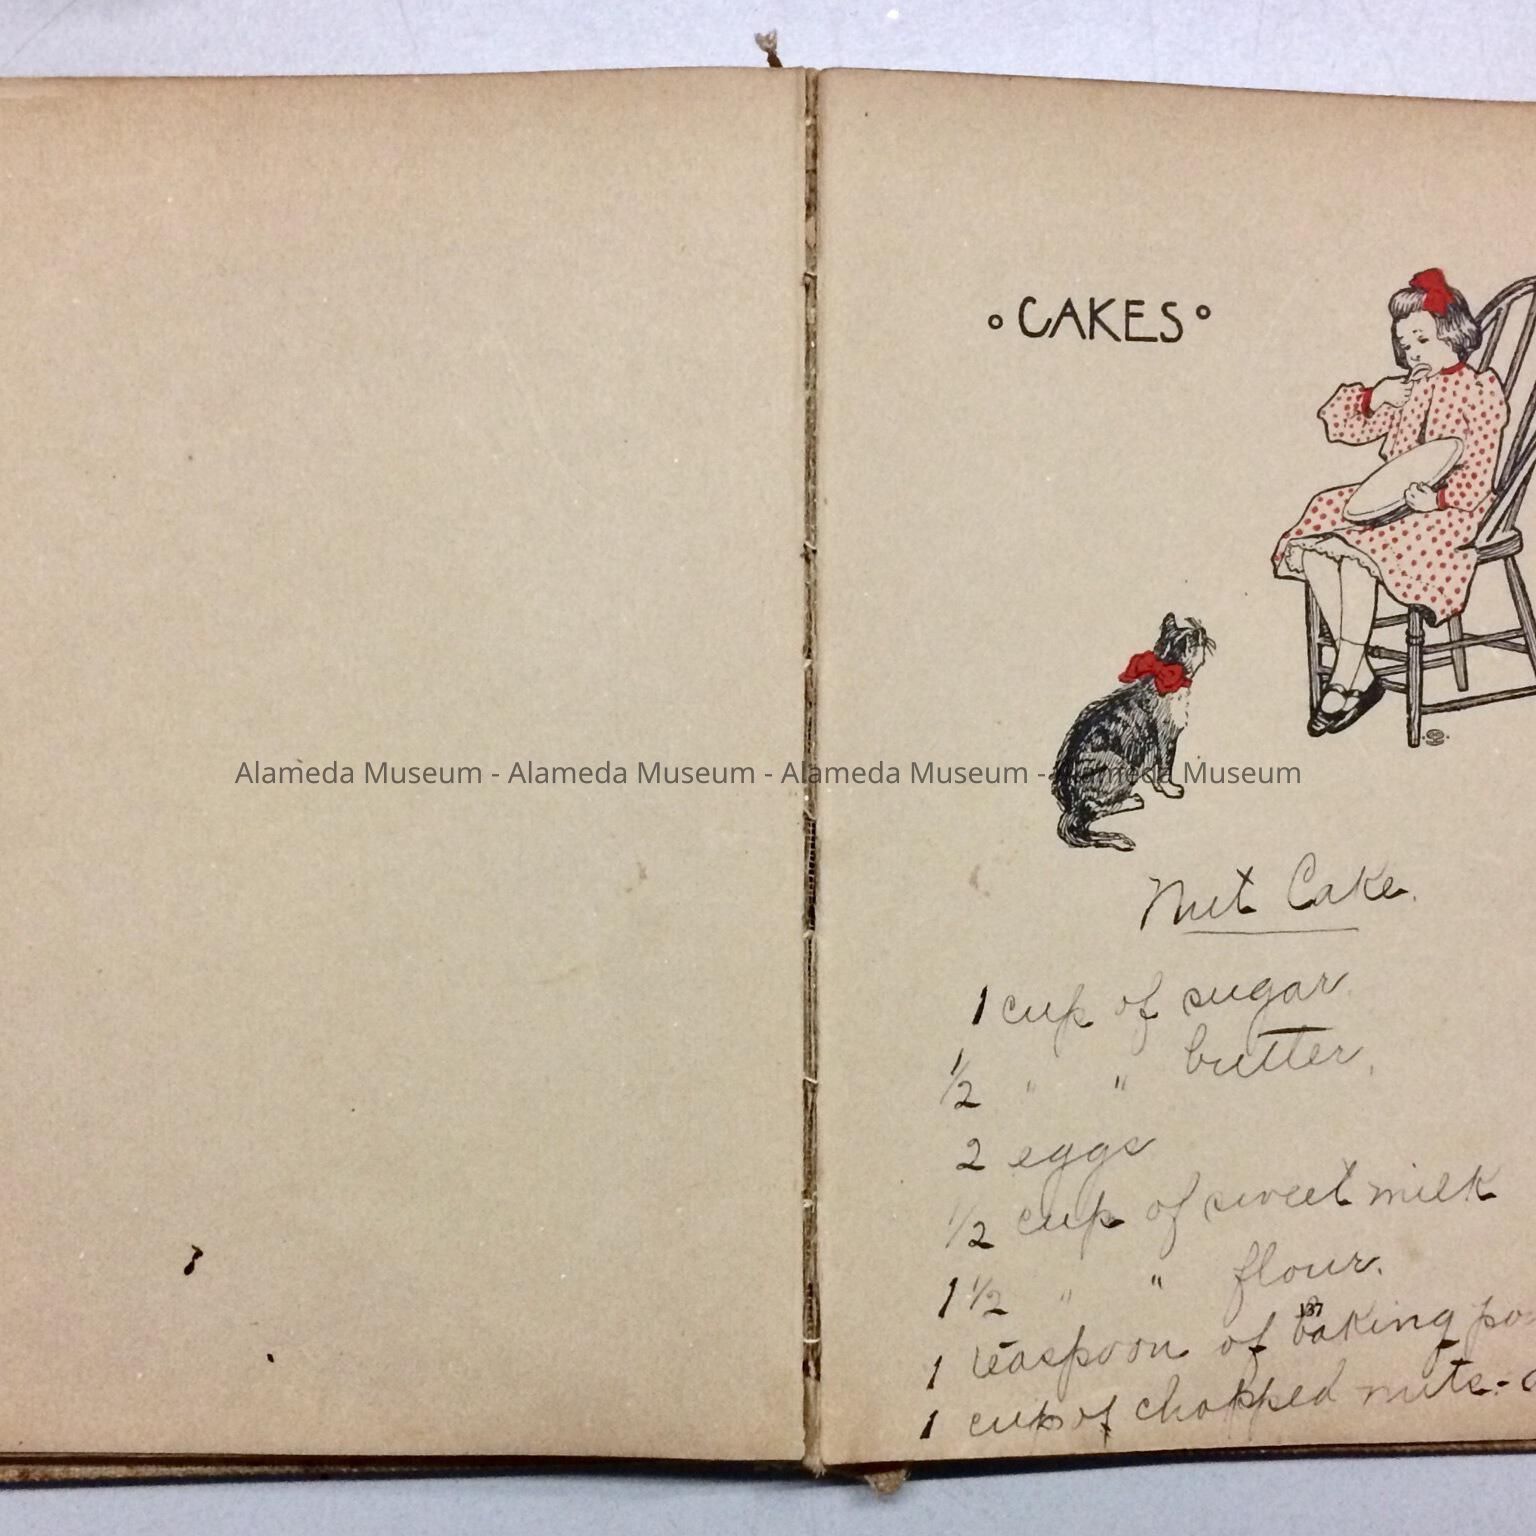 ◦ CAKES ◦
Alameda Museum - Alameda Museum - Alameda Museum - Alameda Museum
Nut Cake.
1 cup of sugar
1/2 " " butter,
2 eggs
1/2 cup of sweet milk
1 1/2 " " flour.
137
1 teaspoon of baking po
1 cup of chopped nuts-